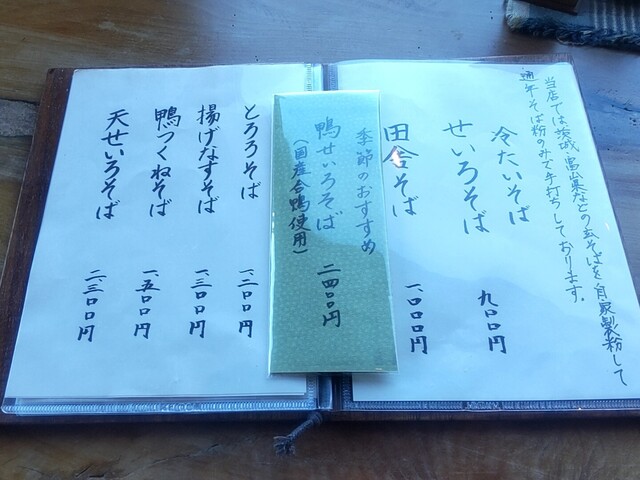 当店では茨城・富山県などの玄そばを自家製粉して
通年そば粉のみで手打ちしております。
冷たいそば
せいろそば 九〇〇円
田舎そば 一、〇〇〇円
季節のおすすめ
鴨せいろそば 二四〇〇円
(国産合鴨使用)
とろろそば 一、二〇〇円
揚げなすそば 一、三〇〇円
鴨つくねそば 一、五〇〇円
天せいろそば 二、三〇〇円